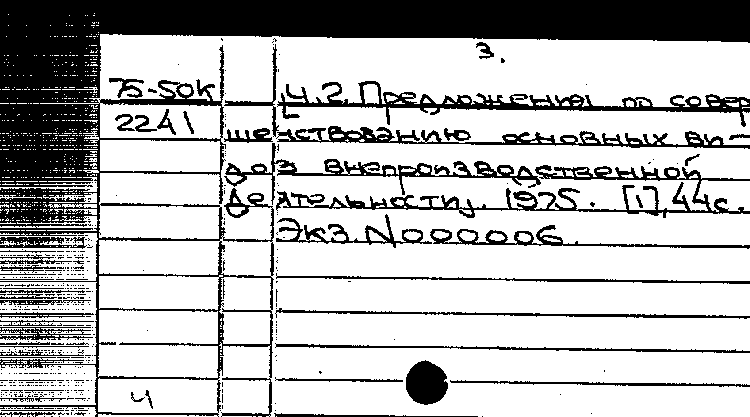 3.
75-50к Ч.2. Предложения по совер
2241 шенствованию основных ви-
дов внепроизводственной
деятельности. 1975. [1], 44с.
Экз. N000006.
4